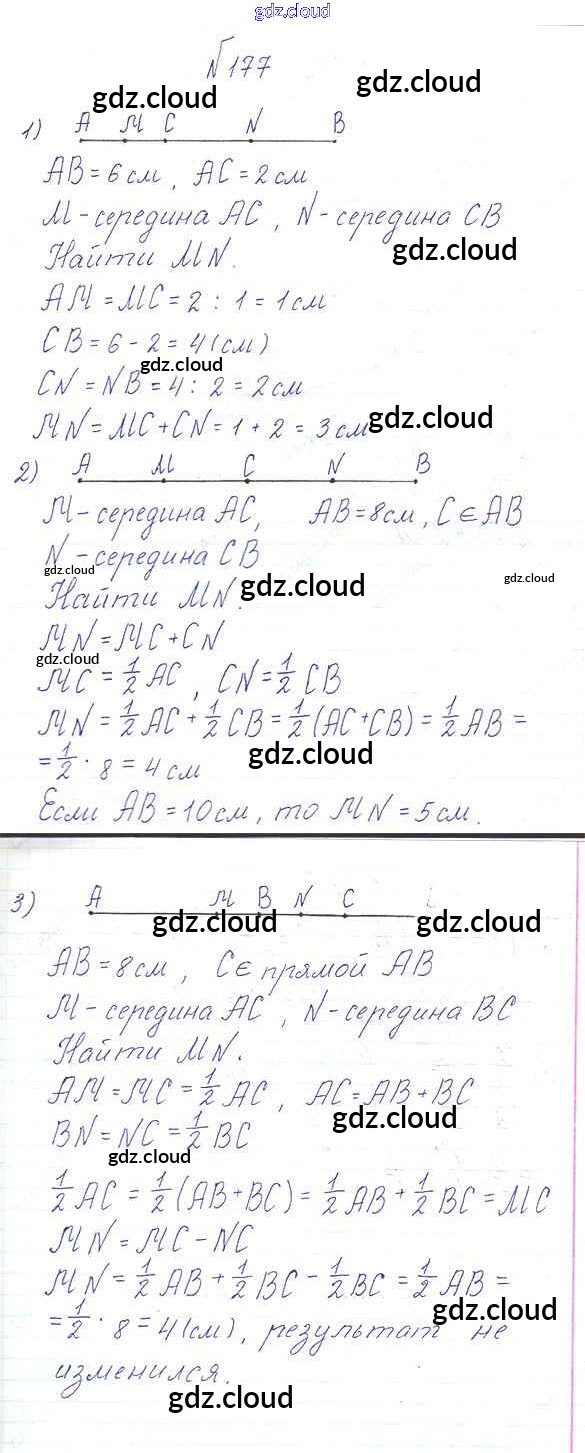 gdz.cloud
№177
gdz.cloud gdz.cloud
1) A M C N B
AB = 6 см, AC = 2 см
M - середина AC, N - середина CB
gdz.cloud
Найти MN.
AM = MC = 2 : 1 = 1 см
CB = 6 - 2 = 4 (см)
gdz.cloud
CN = NB = 4 : 2 = 2 см
gdz.cloud
MN = MC + CN = 1 + 2 = 3 см
2) A M C N B
M - середина AC, AB = 8 см, C ∈ AB
N - середина CB
gdz.cloud gdz.cloud gdz.cloud
Найти MN.
MN = MC + CN
gdz.cloud
MC = 1/2 AC, CN = 1/2 CB
MN = 1/2 AC + 1/2 CB = 1/2 (AC + CB) = 1/2 AB =
gdz.cloud
= 1/2 · 8 = 4 см
Если AB = 10 см, то MN = 5 см.
3) A M B N C
gdz.cloud gdz.cloud
AB = 8 см, C ∈ прямой AB
M - середина AC, N - середина BC
Найти MN.
AM = MC = 1/2 AC, AC = AB + BC
gdz.cloud
BN = NC = 1/2 BC
gdz.cloud
1/2 AC = 1/2 (AB + BC) = 1/2 AB + 1/2 BC = MC
MN = MC - NC
MN = 1/2 AB + 1/2 BC - 1/2 BC = 1/2 AB =
gdz.cloud
= 1/2 · 8 = 4 (см), результат не
изменился.
gdz.cloud